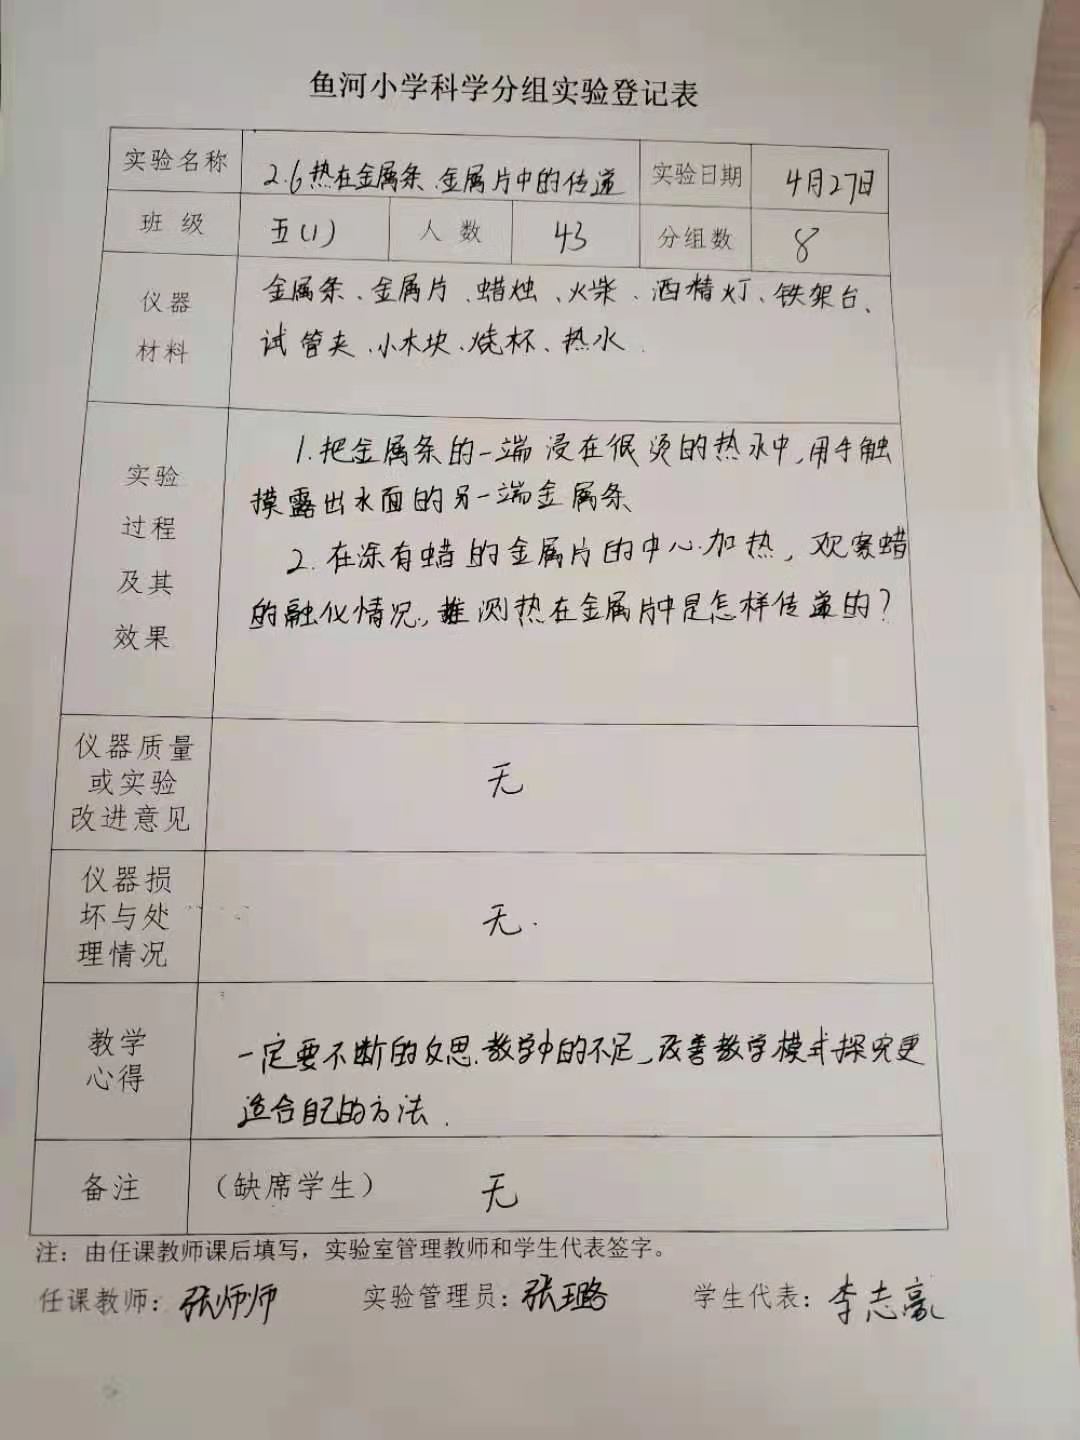 鱼河小学科学分组实验登记表
实验名称 2.6热在金属条、金属片中的传递 实验日期 4月27日
班 级 五(1) 人 数 43 分组数 8
仪器
材料
金属条、金属片、蜡烛、火柴、酒精灯、铁架台、
试管夹、小木块、烧杯、热水.
实验
过程
及其
效果
1.把金属条的一端浸在很烫的热水中,用手触
摸露出水面的另一端金属条
2.在涂有蜡的金属片的中心加热,观察蜡
的融化情况,推测热在金属片中是怎样传递的?
仪器质量
或实验
改进意见
无
仪器损
坏与处
理情况
无.
教学
心得
一定要不断的反思.教学中的不足,改善教学模式探究更
适合自己的方法.
备注 (缺席学生) 无
注：由任课教师课后填写，实验室管理教师和学生代表签字。
任课教师：张师师 实验管理员：张璐 学生代表：李志赢